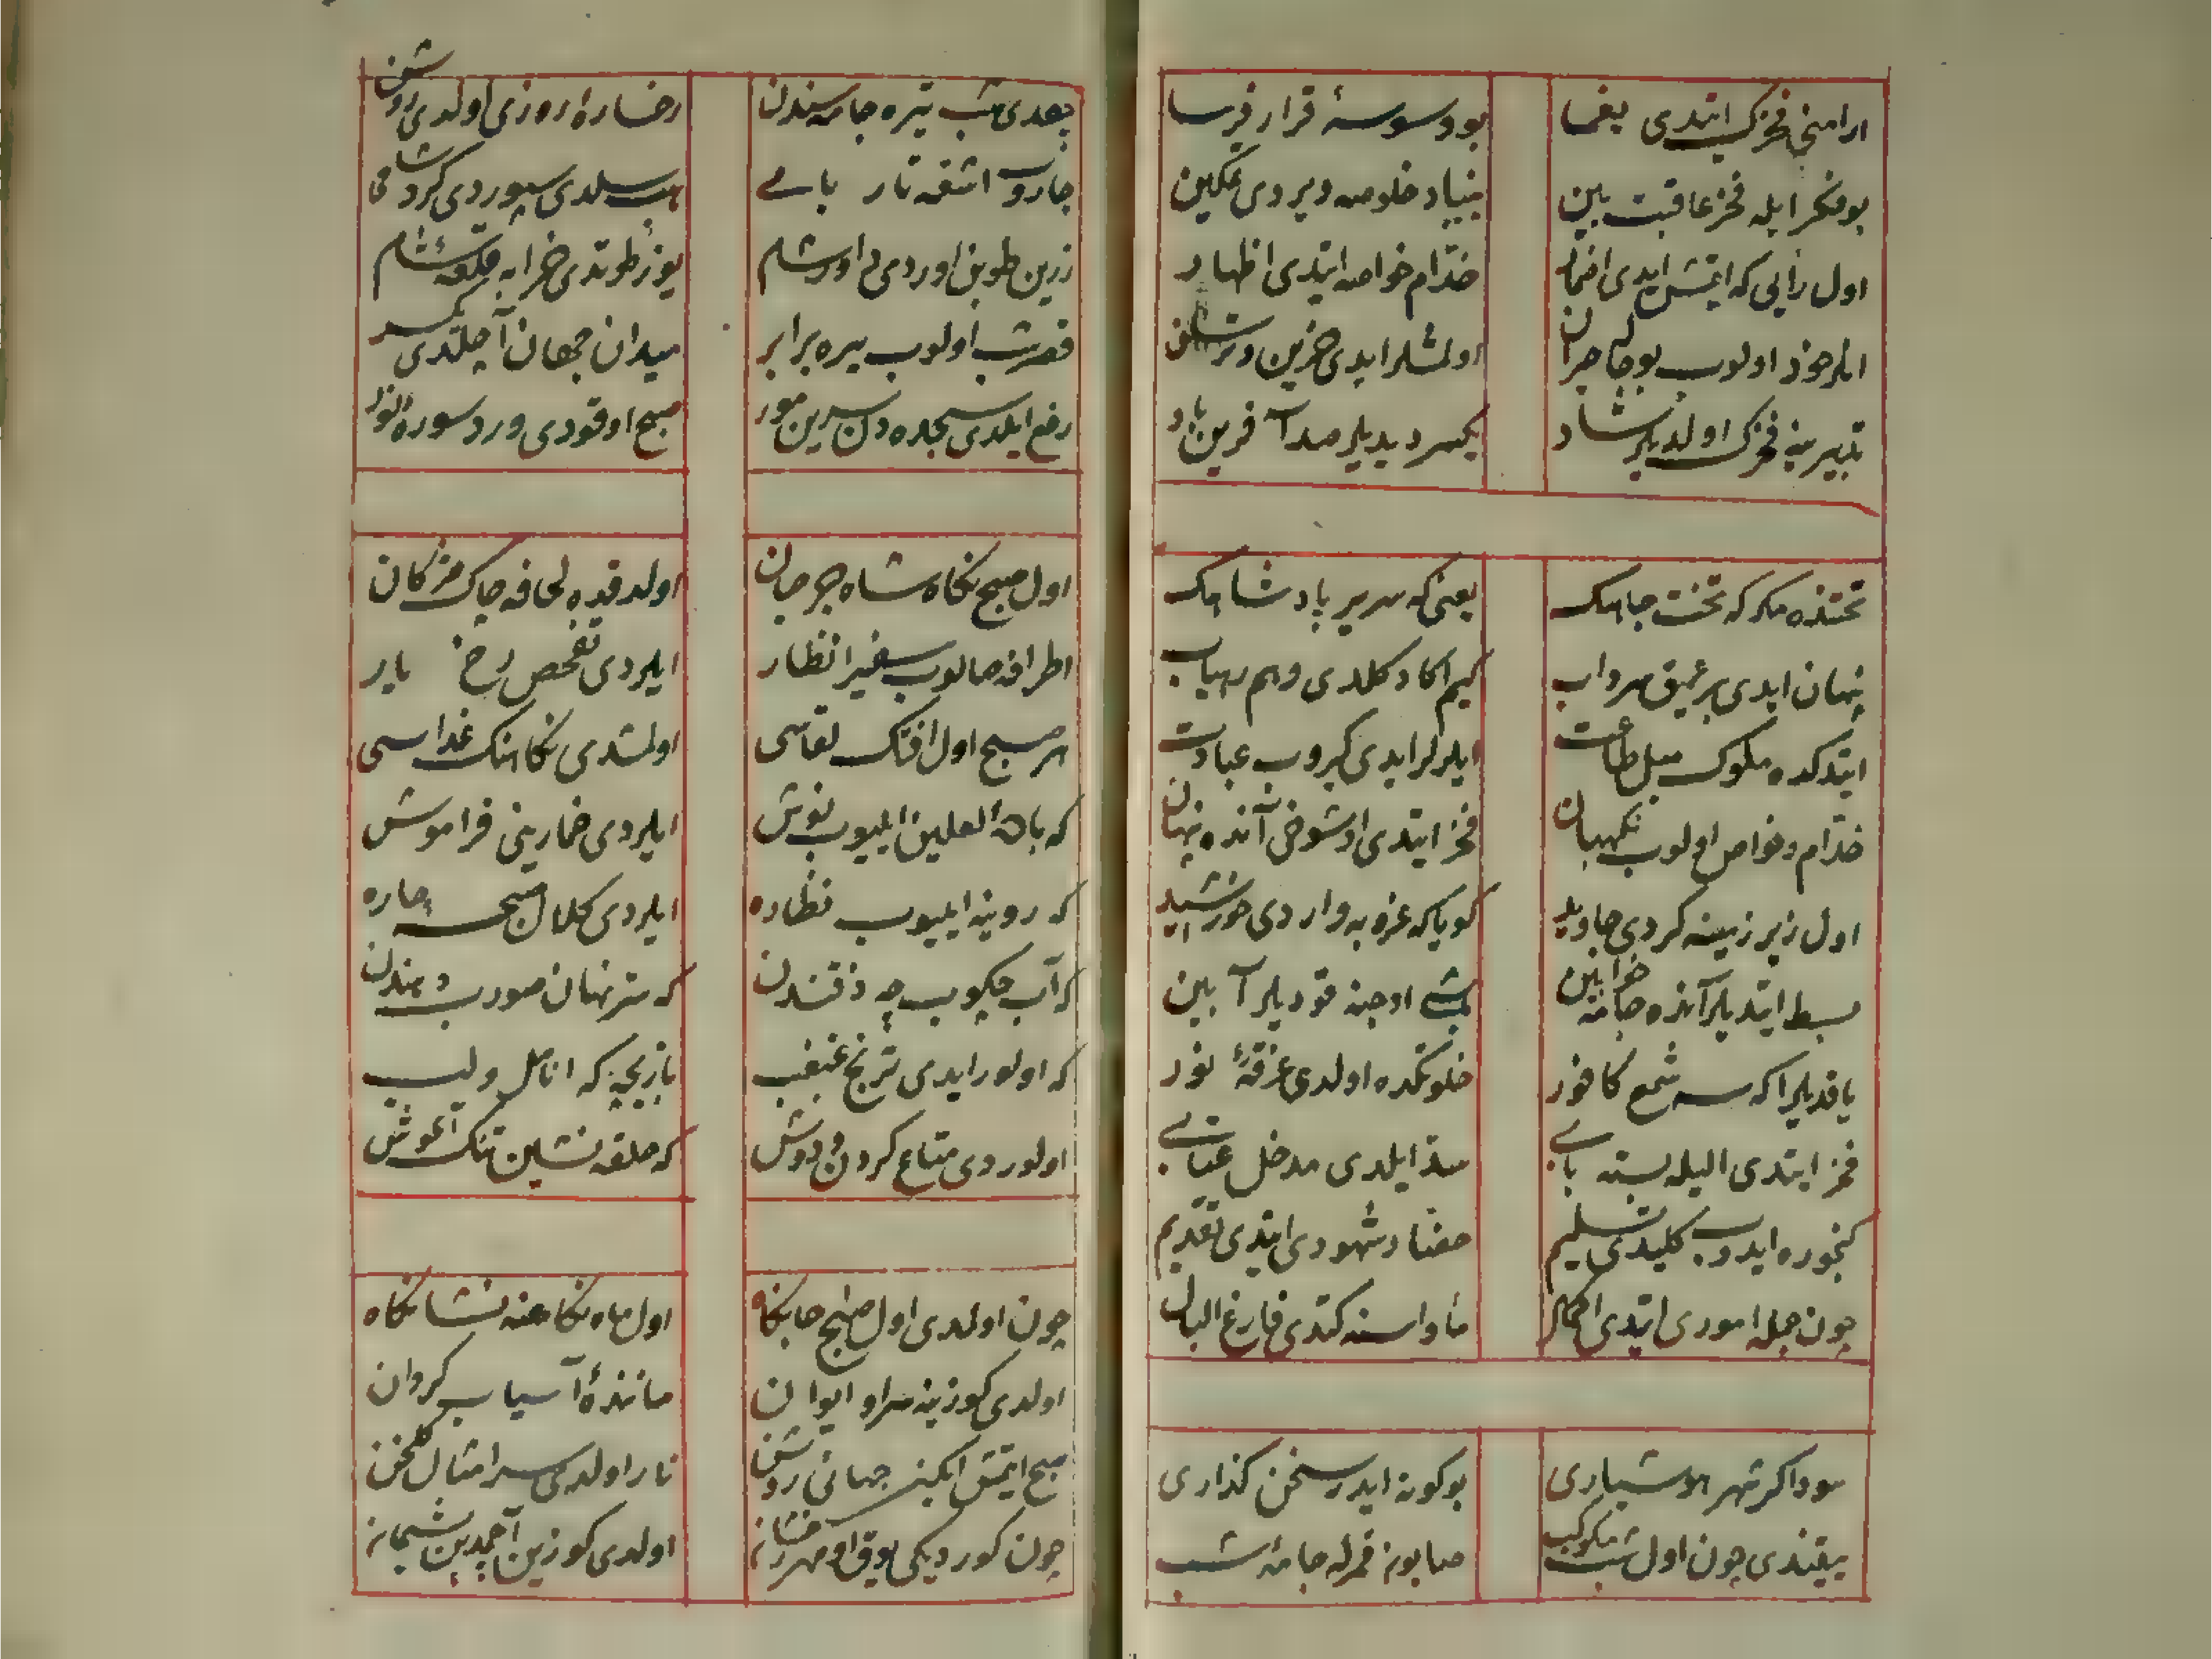 ارامنی فخرك ایتدی یغما
بو وسوسهٔ قرار فرسا
بو فکر ایله فخر عاقبت بین
بنیاد خلوصه ویردی تمکین
اول رایی که ایتمش ایدی اضمار
خدّام خواصه ایتدی اظهار
انلر خود اولوب بو حاله حیران
اولمشلر ایدی حزین و ترسان
تدبیرینه فخرك اولدیلر شاد
یکسر دیدیلر صد آفرین باد
تختنده مکر که تخت جاهك
یعنی که سریر پادشاهك
پنهان ایدی بر عمیق سرداب
کیم اکا کلدی وهم
ایتدکده ملوك میل طاعت
ایلرلر ایدی کیروب عبادت
خدّام و خواص اولوب نکهبان
فخر ایتدی او شوخی آنده پنهان
اول زیر زمینه کردی جاوید
کویا که غروبه واردی خورشید
بسط ایتدیلر آنده جامه خوابین
اوجنه قودیلر آبین
یاقدیلر اکا سه شمع کافور
خلوتکده اولدی غرقهٔ نور
فخر ایتدی الیله بسته بابی
سدّ ایلدی مدخل عتابی
کنجوره ایدوب کلیدی تسلیم
حضّار شهودی ایتدی تقدیم
چون جمله اموری ایتدی اکمال
مأواسنه کتدی فارغ البال
سوداکر شهر هوشیاری
بو کونه ایدر سخن کذاری
ییقندی چون اول شب مکوکب
صابون قمرله جامهٔ شب
چقدی شب تیره جامه سندن
رخسارهٔ روزی اولدی روشن
جاروب اشعه تار
هب سلدی سپوردی کرد شامی
زرین طوپن اوردی داور شام
یوز طوتدی خرابه قلعهٔ شام
قصر شب اولوب یره برابر
میدان جهان آچلدی یکسر
رفع ایلدی سجده دن سرین مور
صبح اوقودی ورد سورهٔ النور
اول صبح نکاه شاه جرجان
اولدقده لحافه چاك مژکان
اطرافه صالوب سفیر انظار
ایلردی تفحص رخ یار
هر صبح اول افتك لقاسی
اولمشدی نکاهنك غداسی
که بادهٔ لعلین ایلیوب نوش
ایلردی خمارینی فراموش
که روینه ایلیوب نظاره
ایلردی کلال صبحه چاره
که آب چکوب چه ذقندن
که سرّ نهان صورب دهندن
که اولور ایدی ترنج غبغب
بازیچه که انامل و لب
اولوردی متاع کردن و دوش
که حلقه نشین تنك آغوش
چون اولمدی اول صبح جانکاه
اول ماه نکاهنه نشانکاه
اولدی کوزینه سرا و ایوان
مانندهٔ آسیاب کردان
صبح ایتمش ایکن جهانی روشن
تار اولدی سرا مثال کلخن
چون کوردیکی یوق او مهر رخشان
اولدی کوزین آچدیغن پشیمان